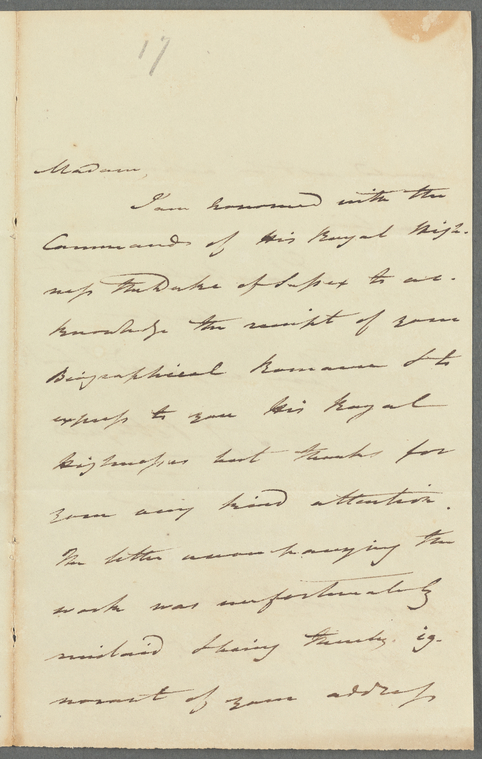 17
Madam,
I am honored with the
Commands of His Royal High-
ness The Duke of Sussex to ac-
knowledge the receipt of your
Biographical Romance & to
express to you His Royal
Highnesses best thanks for
your very kind attention.
The letter accompanying the
work was unfortunately
mislaid & being thereby ig-
norant of your address